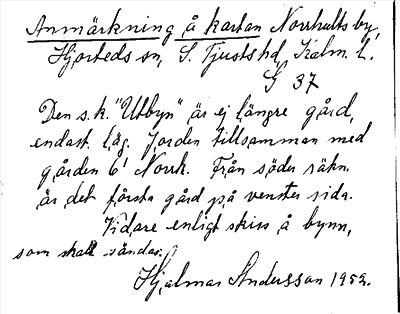 Anmärkning å kartan Norrhults by,
Hjorteds sn, S. Tjusts hd, Kalm. l.
G 37
Den s.k. "Utbyn" är ej längre gård,
endast läg. Jorden tillsamman med
gården 6¹ Norrh. Från söder räkn.
är det första gård på venster sida.
Vidare enligt skiss å bynn,
som skall sändas.
Hjalmar Andersson 1952.